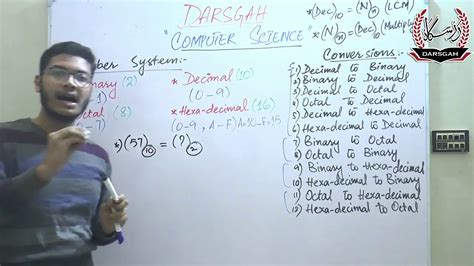 DARSGAH
"COMPUTER SCIENCE"
*(Dec)10 = (N)2 (LCM)
*(N) = (Dec)10 (Multiple
DARSGAH
ber System:-
nary (2)
-1)
* Decimal (10)
(0-9)
tal (8)
-7)
* Hexa-decimal (16)
(0-9, A-F) A=10-F=15
*)(57)10 = (?)2
Conversions:-
1) Decimal to Binary
2) Binary to Decimal
3) Decimal to Octal
4) Octal to Decimal
5) Decimal to Hexa-decimal
6) Hexa-decimal to Decimal
7) Binary to Octal
8) Octal to Binary
9) Binary to Hexa-decimal
10) Hexa-decimal to Binary
11) Octal to Hexa-decimal
12) Hexa-decimal to Octal